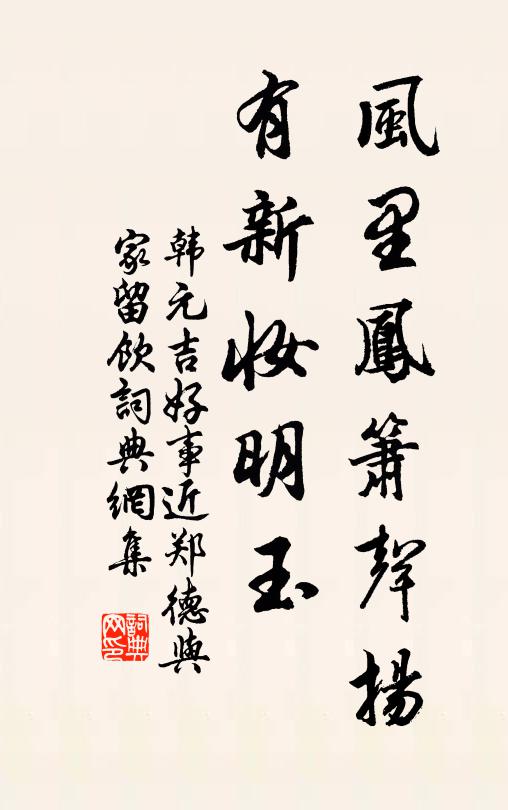 風里鳳簫聲揚
有新妝明玉
韩元吉好事近郑德與
家留飲詞典網集
詞典
网印